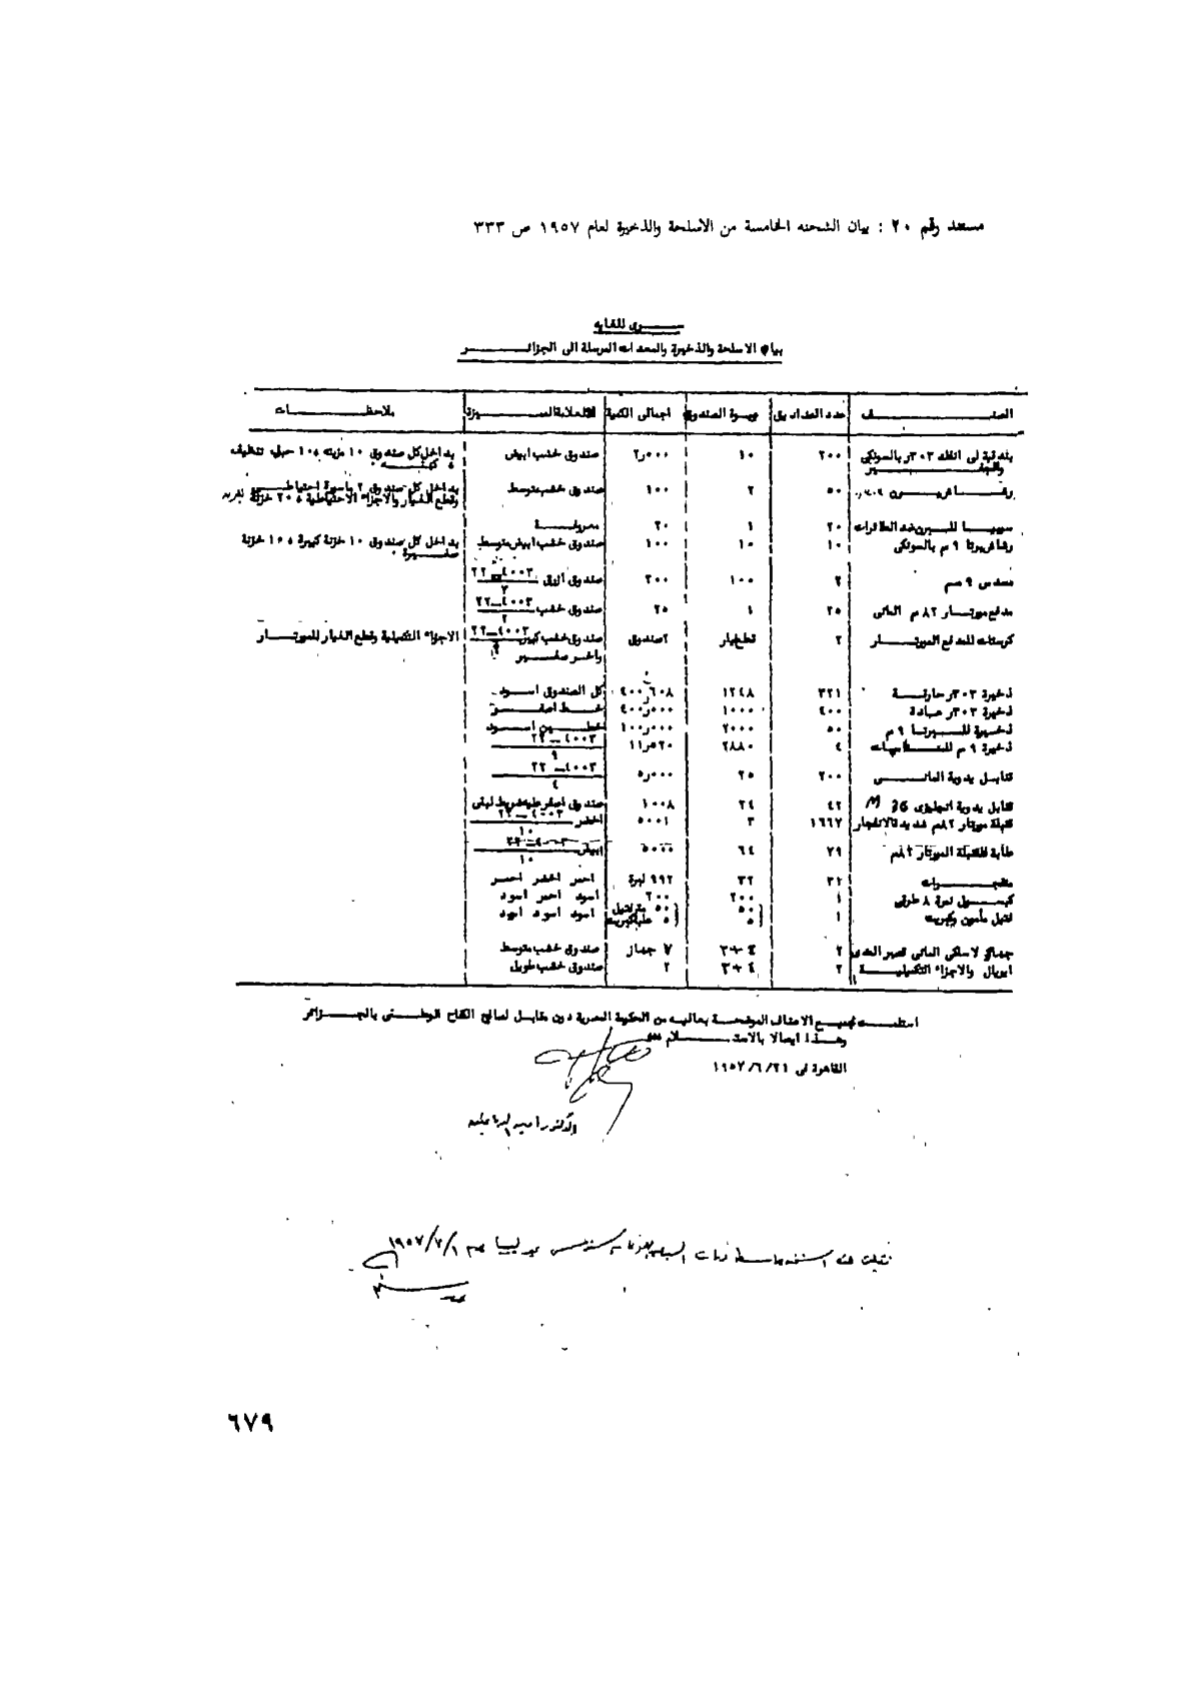 مستند رقم ٢٠ : بيان الشحنه الخامسة من الاسلحة والذخيرة لعام ١٩٥٧ ص ٣٣٣
ســـرى للغايه
بيان الاسلحة والذخيرة والمعدات المرسلة الى الجزائــــر
الصنــف عدد الصناديق عبوة الصندوق اجمالى الكمية العلامة المميزة ملاحظــات
بندقية لى انفلد ٣٠٣ر بالسونكى ٢٠٠ ١٠ ٢٠٠٠ صندوق خشب ابيض بداخل كل صندوق ١٠ مزيته ، ١٠ حبل تنظيف
٥٠ ٢ ١٠٠ صندوق خشب متوسط بداخل كل صندوق ٢ ماسورة احتياطــى
وقطع الغيار والاجزاء الاحتياطية ، ٢٠ خزنة
للبرن ضد الطائرات ٢٠ ١ ٢٠
رشاش برتا ٩ م بالسونكى ١٠ ١٠ ١٠٠ صندوق خشب ابيض متوسط بداخل كل صندوق ١٠ خزنة كبيرة ، ١٠ خزنة
صغيــرة ٠
مسدس ٩ مم ٢ ١٠٠ ٢٠٠ صندوق ازرق ٤٠٠٣ـ٢٢
مدفع مورتــار ٨٢ م المانى ٢٥ ١ ٢٥ صندوق خشب ٤٠٠٣ـ٢٢
٢
للمدفع المورتــار ٢ قطع غيار ٢ صندوق صندوق خشب كبير ٤٠٠٣ـ٢٢ الاجزاء التكميلية وقطع الغيار للمورتــار
واخر صغيــر
ذخيرة ٣٠٣ر حارقــة ٣٢١ ١٢٤٨ ٤٠٠٦٠٨ كل الصندوق اسـود
ذخيرة ٣٠٣ر عــادة ٤٠٠ ١٠٠٠ ٤٠٠٠٠٠ خــط اصفــر
ذخيــرة للبــرتــا ٩ م ٥٠ ٢٠٠٠ ١٠٠٠٠٠ خطــين اســود
ذخيرة ٩ م ٤ ٢٨٨٠ ١١٥٢٠ ٤٠٠٣ـ٢٢
٩
قنابــل يدوية المانــى ٢٠٠ ٢٥ ٥٠٠٠ ٤٠٠٣ــ٢٢
٤
قنابل يدوية انجليزى M 36 ٤٢ ٢٤ ١٠٠٨ صندوق اصفر عليه شريط لبنى
قنبلة مورتار ٨٢م شديدة الانفجار ١٦٦٧ ٣ ٥٠٠١ اخضر ٤٠٠٣ـ٢٢
١٠
طابة لقنبلة المورتار ٨٢م ٧٩ ٦٤ ٥٠٠٠ ابيض ٤٠٠٣ـ٢٢
١٠
متفجــرات ٣١ ٣٢ ٩٩٢ لبرة احمر اخضر احمر
كبســول نمرة ٨ طرقى ١ ٢٠٠ ٢٠٠ اسود احمر اسود
فتيل مأمون وكبريت ١ ٥٠ ٥٠ متر فتيل اسود اسود اسود
٥ ٥ علبة كبريت
جهاز لاسلكى المانى قصير المدى ٢ ٤+٣ ٧ جهاز صندوق خشب متوسط
ايريال والاجزاء التكميليــة ٢ ٤+٣ ٢ صندوق خشب طويل
استلمــت جميــع الاصناف الموضحــة بعاليــه من الحكومة المصرية دون مقابل لصالح الكفاح الوطنــى بالجــزائر
وهــذا ايصالا بالاستــلام
القاهرة فى ٢١ / ٦ / ١٩٥٧
الدكتور امين
١٩٥٧/٧/١
٦٧٩